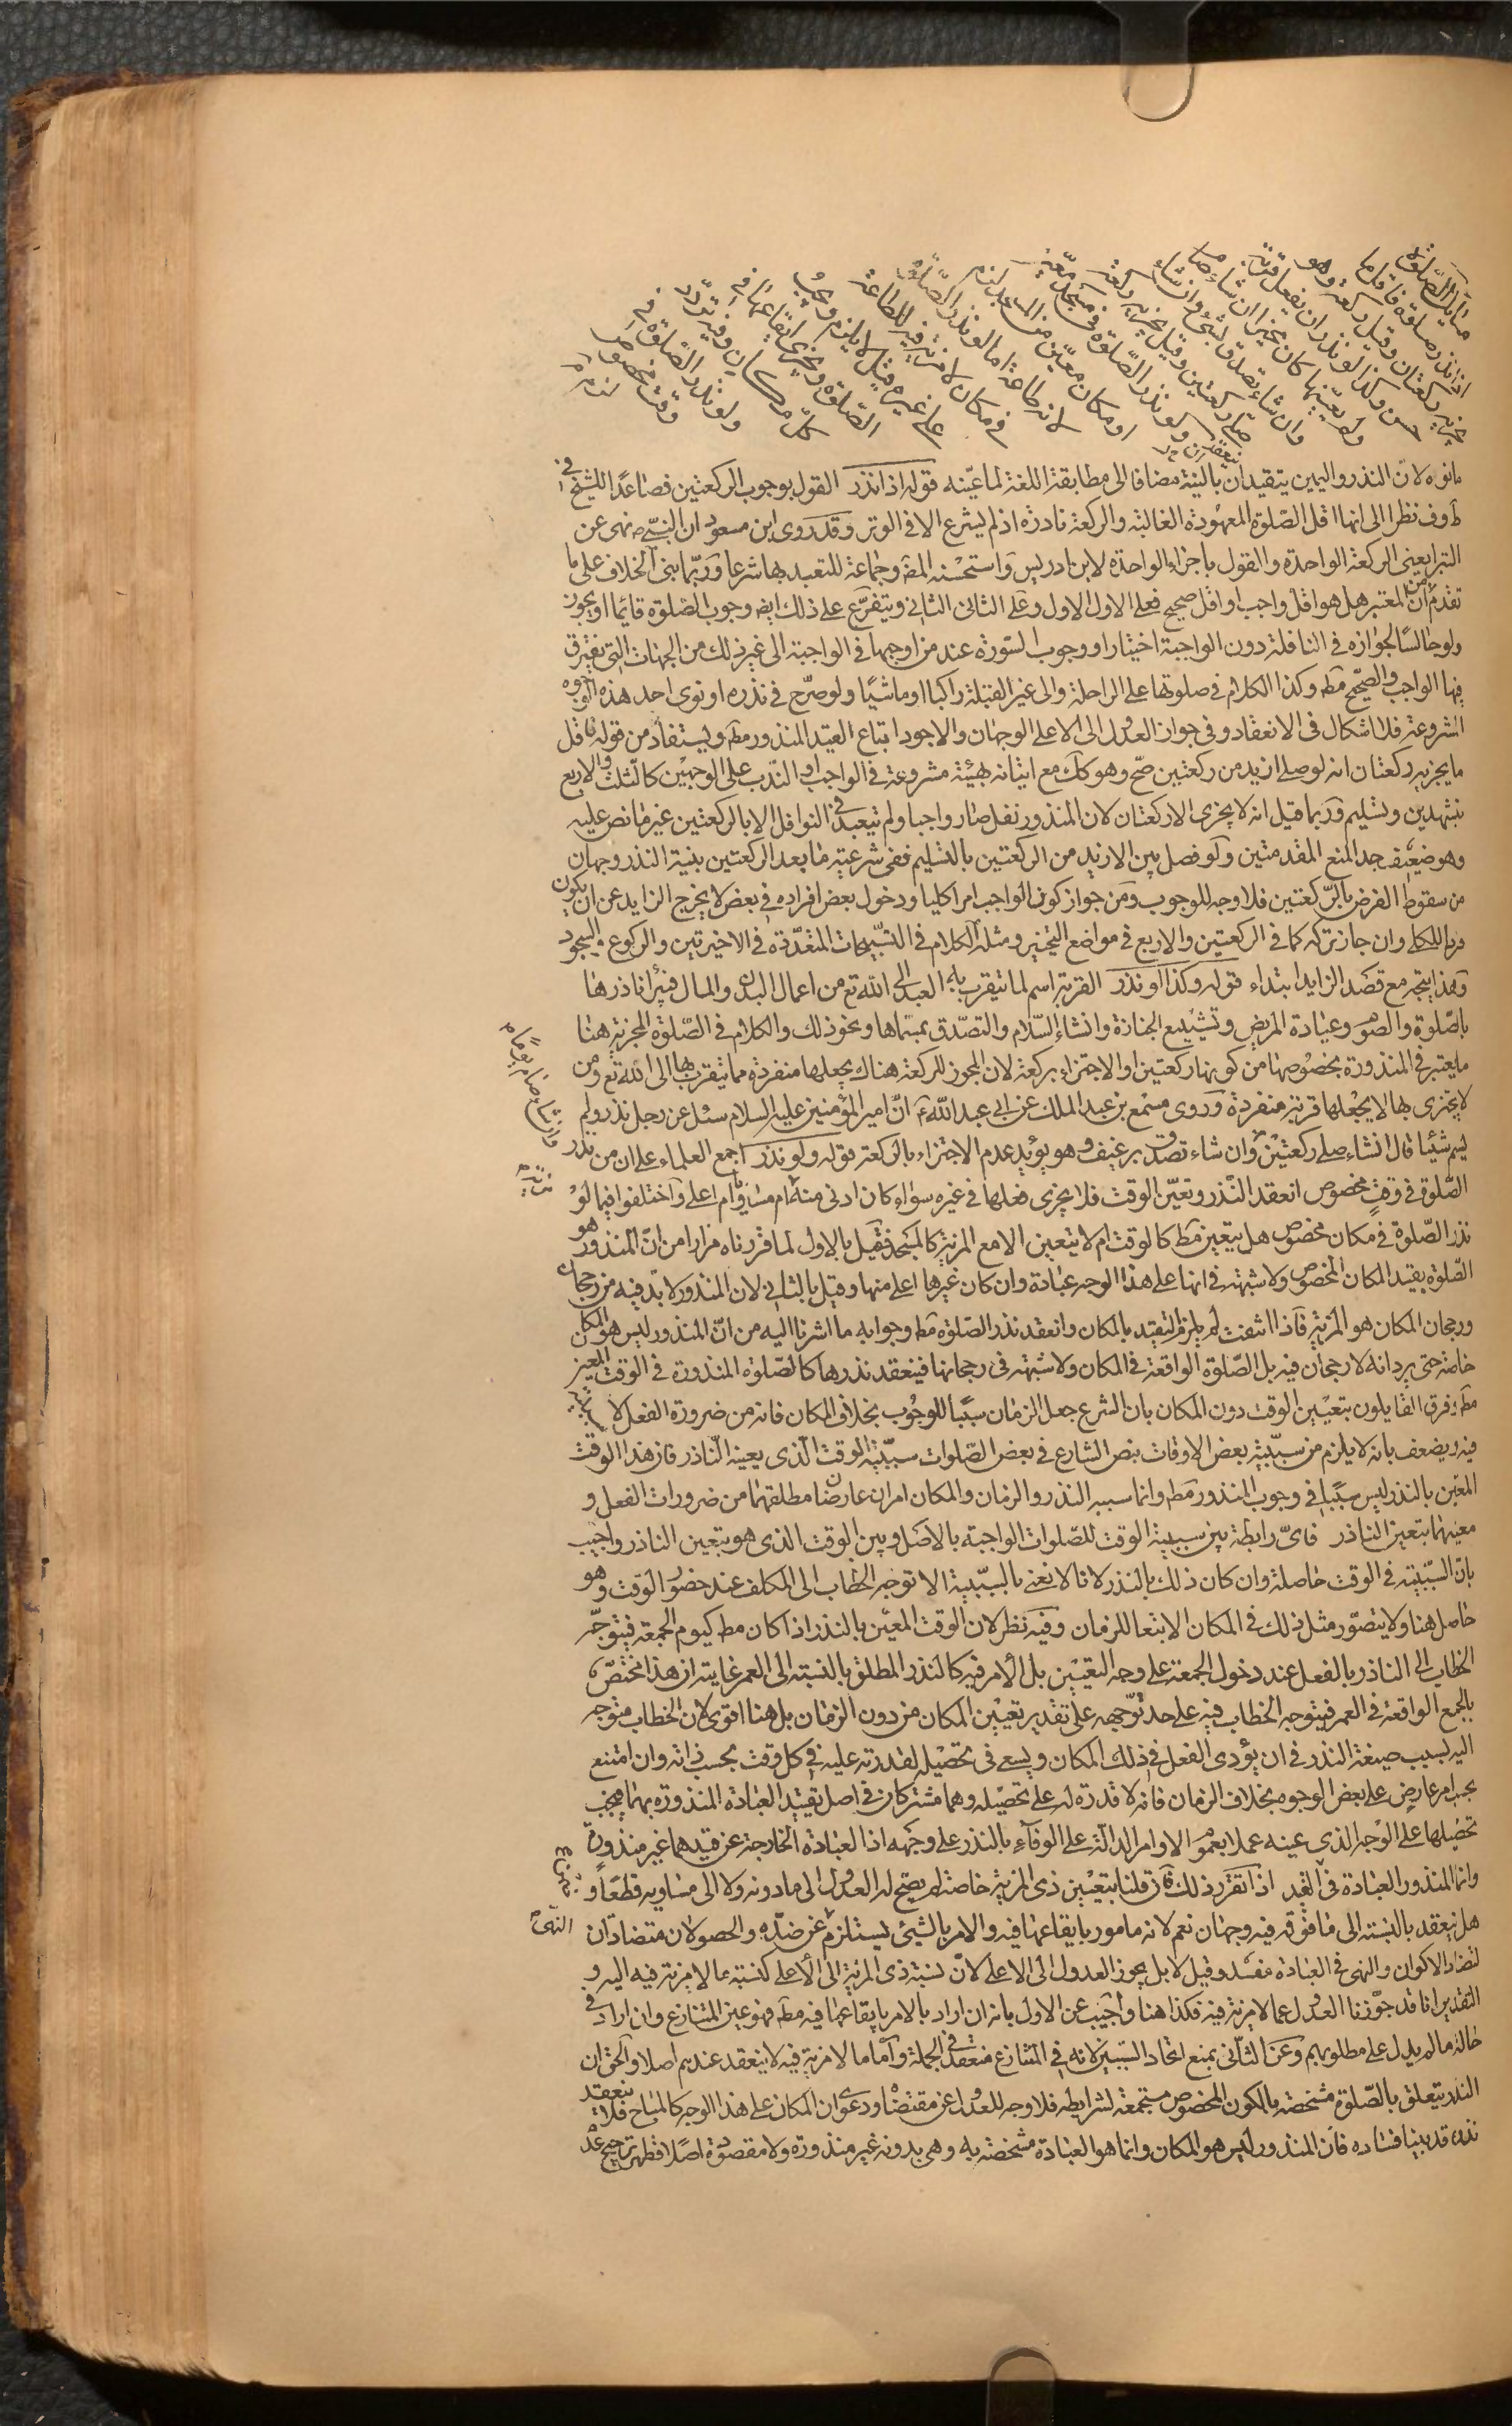 مسائل الصلوة
اذا نذر صلوة فاقل ما
يجزيه ركعتان وقيل ركعة وهو
حسن وكذا لو نذر ان يفعل قربة
ولم يعينها كان مخيرا ان شاء صام
وان شاء تصدق بشئ وان شاء
صلى ركعتين وقيل يجزيه ركعة
ولو نذر الصلوة في مسجد معين
او مكان معين من المسجد لزم
لانه طاعة اما لو نذر الصلوة
في مكان لا مزية فيه للطاعة
على غيره قيل لا يلزم ويجب
الصلوة ويجزي ايقاعها في
كل مكان وفيه تردد
ولو نذر الصلوة في
وقت مخصوص
لزم
مانواه لان النذر واليمين يتقيدان بالنية مضافا الى مطابقة اللغة لما عينه قوله اذا نذر القول بوجوب الركعتين فصاعدا للشيخ في
ط وف نظرا الى انها اقل الصلوة المعهودة الغالبة والركعة نادرة اذ لم يشرع الا في الوتر وقد روى ابن مسعود ان النبي ص نهى عن
البترا يعني الركعة الواحدة والقول باجزاء الواحدة لابن ادريس واستحسنه المص وجماعة للتعبد بها شرعا وربما بني الخلاف على ما
تقدم من ان المعتبر هل هو اقل واجب او اقل صحيح فعلى الاول الاول وعلى الثاني الثاني ويتفرع على ذلك ايض وجوب الصلوة قائما او يجوز
ولو جالسا لجوازه في النافلة دون الواجبة اختيارا ووجوب السورة عند من اوجبها في الواجبة الى غير ذلك من الجهات التي يفترق
فيها الواجب والصحيح مط وكذا الكلام في صلوتها على الراحلة والى غير القبلة راكبا او ماشيا ولو صرح في نذره او نوى احد هذه الوجوه
المشروعة فلا اشكال في الانعقاد وفي جواز العدول الى الاعلى الوجهان والاجود اتباع القيد المنذور مط ويستفاد من قوله فاقل
ما يجزيه ركعتان انه لو صلى ازيد من ركعتين صح وهو كك مع اتيانه بهيئة مشروعة في الواجب او الندب على الوجهين كالثلث والاربع
بتشهدين وتسليم وربما قيل انه لا يجزي الا ركعتان لان المنذور نفل صار واجبا ولم يتعبد في النوافل الا بالركعتين غير ما نص عليه
وهو ضعيف جدا لمنع المقدمتين ولو فصل بين الازيد من الركعتين بالتسليم ففي شرعية ما بعد الركعتين بنية النذر وجهان
من سقوط الفرض بالركعتين فلا وجه للوجوب ومن جواز كون الواجب امرا كليا ودخول بعض افراده في بعض لا يخرج الزايد عن ان يكون
فردا للكلي وان جاز تركه كما في الركعتين والاربع في مواضع التخيير ومثله الكلام في التسبيحات المتعددة في الاخيرتين والركوع والسجود
وهذا يتجه مع قصد الزايد ابتداء قوله وكذا لو نذر القربة اسم لما يتقرب به العبد الى الله تع من اعمال البدن والمال فيبرأ ناذرها
بالصلوة والصوم وعيادة المريض وتشييع الجنازة وافشاء السلام والتصدق بمسماها ونحو ذلك والكلام في الصلوة المجزية هنا
ما يعتبر في المنذورة بخصوصها من كونها ركعتين او الاجتزاء بركعة لان المجوز للركعة هناك يجعلها منفردة مما يتقرب بها الى الله تع ومن
لا يجتزي بها لا يجعلها قربة منفردة وروى مسمع بن عبد الملك عن ابي عبد الله ع ان امير المؤمنين عليه السلام سئل عن رجل نذر ولم
يسم شيئا قال ان شاء صلى ركعتين وان شاء تصدق برغيف وهو يؤيد عدم الاجتزاء بالركعة قوله ولو نذر اجمع العلماء على ان من نذر
وان شاء صام يوما
الصلوة في وقت مخصوص انعقد النذر وتعين الوقت فلا يجزي فعلها في غيره سواء كان ادنى منه ام مساويا ام اعلى واختلفوا فيما لو
نذر الصلوة في مكان مخصوص هل يتعين مط كالوقت ام لا يتعين الا مع المزية كالمسجد فقيل بالاول لما قررناه مرارا من ان المنذور هو
الصلوة بقيد المكان المخصوص ولا شبهة في انها على هذا الوجه عبادة وان كان غيرها اعلى منها وقيل بالثاني لان المنذور لا بد فيه من رجحان
ورجحان المكان هو المزية فاذا انتفت لم يلزم التقيد بالمكان وانعقد نذر الصلوة مط وجوابه ما اشرنا اليه من ان المنذور ليس هو المكان
خاصة حتى يرد انه لا رجحان فيه بل الصلوة الواقعة في المكان ولا شبهة في رجحانها فينعقد نذرها كالصلوة المنذورة في الوقت المعين
مط وفرق القايلون بتعيين الوقت دون المكان بان الشرع جعل الزمان سببا للوجوب بخلاف المكان فانه من ضرورة الفعل لا سببية
فيه ويضعف بانه لا يلزم من سببية بعض الاوقات بنص الشارع في بعض الصلوات سببية الوقت الذي يعينه الناذر فان هذا الوقت
المعين بالنذر ليس سببا في وجوب المنذور مط وانما سببه النذر والزمان والمكان امران عارضان مطلقهما من ضرورات الفعل و
معينهما بتعيين الناذر فاي رابطة بين سببية الوقت للصلوات الواجبة بالاصل وبين الوقت الذي هو بتعيين الناذر واجيب
بان السببية في الوقت حاصلة وان كان ذلك بالنذر لانا لا نعني بالسببية الا توجه الخطاب الى المكلف عند حضور الوقت وهو
حاصل هنا ولا يتصور مثل ذلك في المكان الا تبعا للزمان وفيه نظر لان الوقت المعين بالنذر اذا كان مط كيوم الجمعة فيتوجه
الخطاب الى الناذر بالفعل عند دخول الجمعة على وجه التعيين بل الامر فيه كالنذر المطلق بالنسبة الى العمر غايته ان هذا مختص
بالجمع الواقعة في العمر فيتوجه الخطاب فيه على حد توجهه على تقدير تعيين المكان من دون الزمان بل هنا اقوى لان الخطاب متوجه
اليه بسبب صيغة النذر في ان يؤدي الفعل في ذلك المكان ويسعى في تحصيله لقدرته عليه في كل وقت بحسب ذاته وان امتنع
بحسب امر عارض على بعض الوجوه بخلاف الزمان فانه لا قدرة له على تحصيله وهما مشتركان في اصل تقييد العبادة المنذورة بهما فيجب
تحصيلها على الوجه الذي عينه عملا بعموم الاوامر الدالة على الوفاء بالنذر على وجهه اذ العبادة الخارجة عن قيدهما غير منذورة
وانما المنذور العبادة في القيد اذا تقرر ذلك فان قلنا بتعيين ذي المزية خاصة لم يصح له العدول الى ما دونه ولا الى مساويه قطعا و
هل ينعقد بالنسبة الى ما فوقه فيه وجهان نعم لانه مامور بايقاعها فيه والامر بالشئ يستلزم النهي عن ضده والحصولان متضادان
لتضاد الاكوان والنهي في العبادة مفسد وقيل لا بل يجوز العدول الى الاعلى لان نسبة ذي المزية الى الاعلى كنسبة ما لا مزية فيه اليه و
التقدير انا قد جوزنا العدول عما لا مزية فيه فكذا هنا واجيب عن الاول بانه ان اراد بالامر بايقاعها فيه مط فهو عين المتنازع وان اراد في
حالة ما لم يدل على مطلوبهم وعن الثاني بمنع اتحاد السببين لانه في المتنازع منعقد في الجملة واما ما لا مزية فيه لا ينعقد عندهم اصلا والحق ان
النذر يتعلق بالصلوة مشخصة بالكون المخصوص مستجمعة لشرايطه فلا وجه للعدول عن مقتضاه ودعوى ان المكان على هذا الوجه كالمباح فلا ينعقد
نذره قد بينا فساده فان المنذور ليس هو المكان وانما هو العبادة مشخصة به وهي بدونه غير منذورة ولا مقصودة اصلا فظهر ترجيح